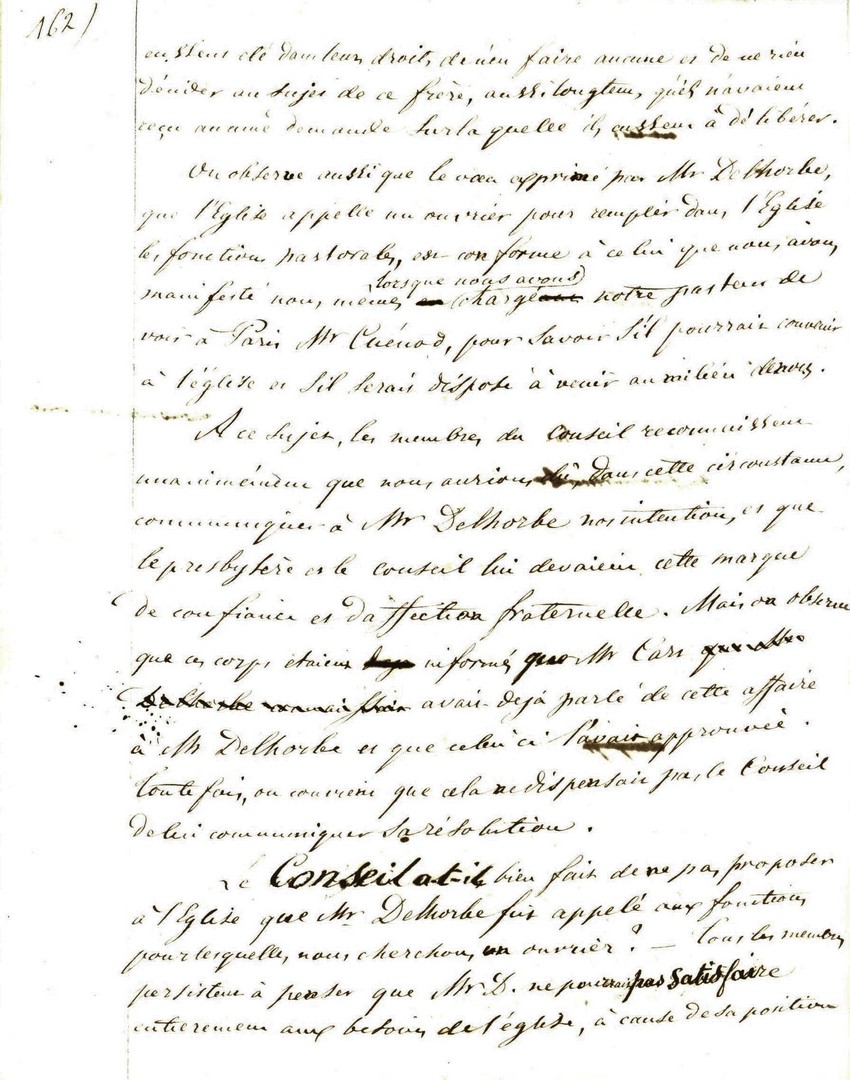 162)
eussent été dans leurs droits, de n'en faire aucune et de ne rien
décider au sujet de ce frère, aussi longtems, qu'ils n'avaient
reçu aucune demande sur la quelle ils eussent à délibérer.
On observe aussi que le vœu exprimé par Mr Delhorbe,
que l'Eglise appelle un ouvrier pour remplir dans l'Eglise
les fonctions pastorales, est conforme à celui que nous avons
lorsque nous avons
manifesté nous mêmes en chargé notre pasteur de
voir à Paris Mr Cuénod, pour savoir s'il pourrait convenir
à l'église et s'il serait disposé à venir au milieu de nous.
A ce sujet, les membres du Conseil reconnaissent
unanimément que nous aurions dû, dans cette circonstance,
communiquer à Mr Delhorbe nos intentions, et que
le presbytère et le conseil lui devaient cette marque
de confiance et d'affection fraternelle. Mais on observe
que ces corps étaient informés que Mr Cars que Mr
Delhorbe avait déjà parlé de cette affaire
à Mr Delhorbe et que celui ci l'avait approuvée.
Toute fois, on convient que cela ne dispensait pas le Conseil
de lui communiquer sa résolution.
Le Conseil a-t-il bien fait de ne pas proposer
à l'Eglise que Mr Delhorbe fut appelé aux fonctions
pour lesquelles nous cherchons un ouvrier? — Tous les membres
persistent à penser que Mr D. ne pourrait pas satisfaire
entierement aux besoins de l'église, à cause de sa position